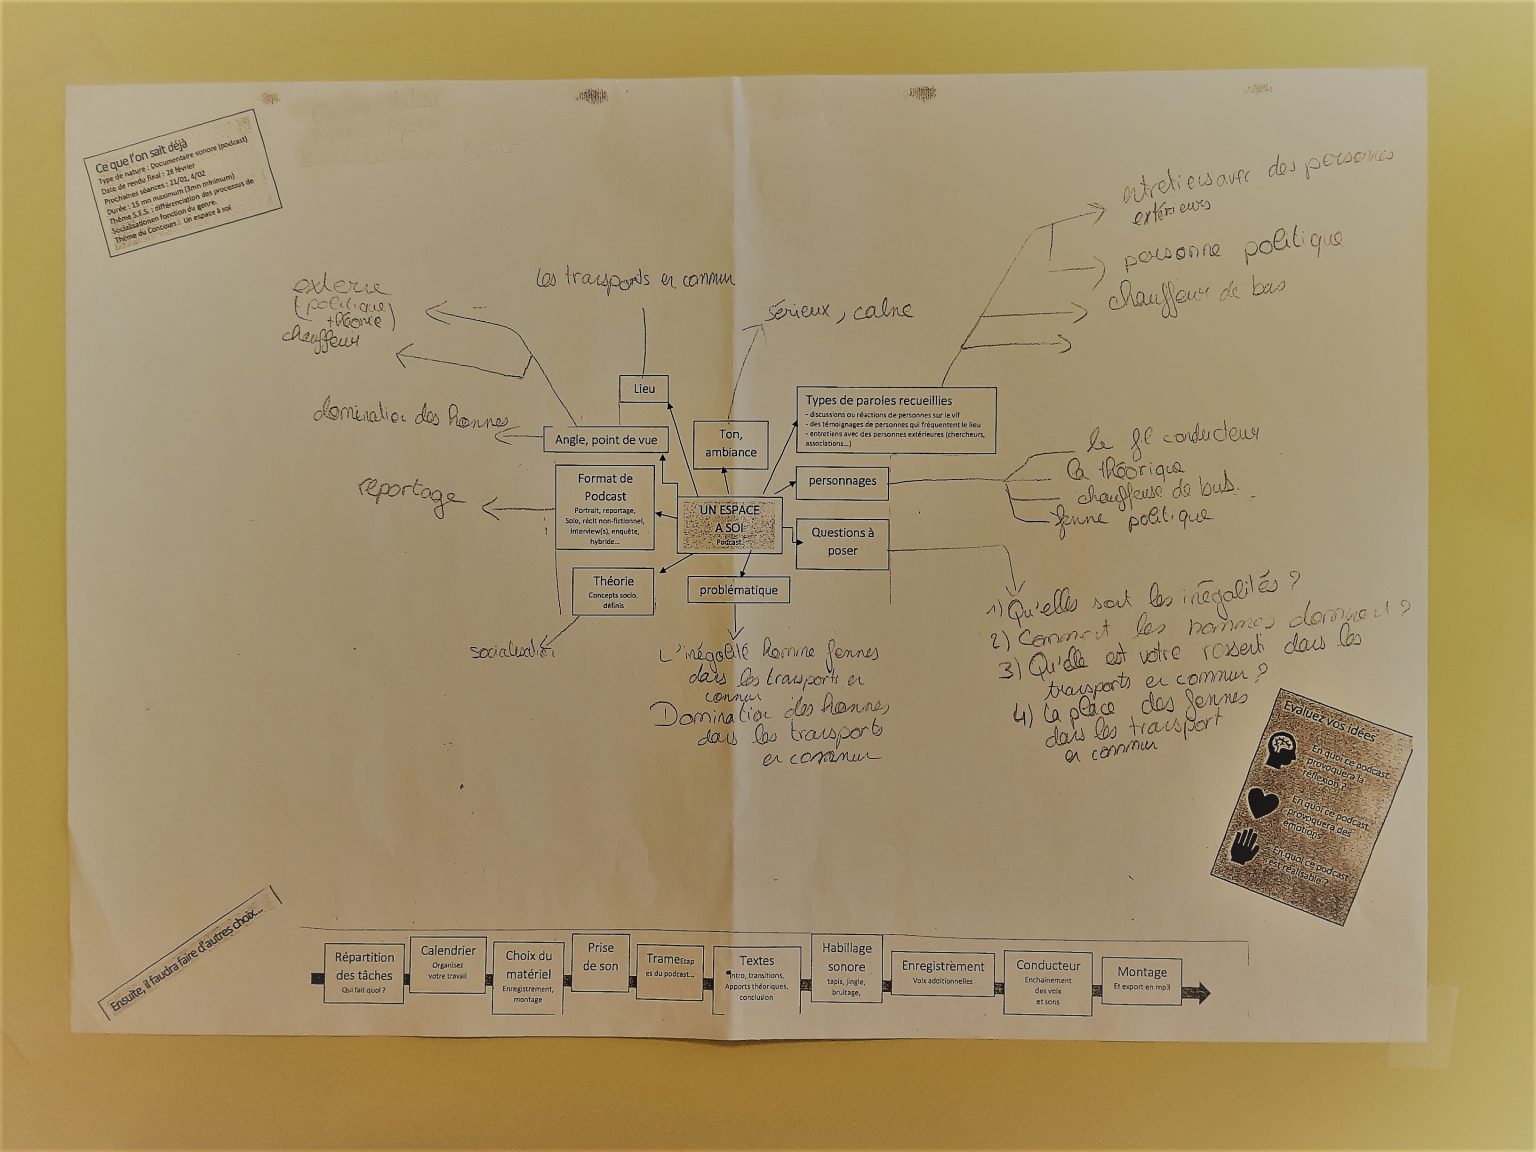 Ce que l'on sait déjà
Type de nature : Documentaire sonore (podcast)
Date de rendu final : 28 février
Prochaines séances : 21/01, 4/02
Durée : 15 mn maximum (3mn minimum)
Thème S.E.S. : différenciation des processus de
Socialisationen fonction du genre.
Thème du Concours : Un espace à soi
entretiens avec des personnes
extérieurs
personne politique
chauffeur de bus
externe
(politique)
théorie)
chauffeur
les transports en commun
sérieux, calme
domination des hommes
reportage
Lieu
Angle, point de vue
Ton,
ambiance
Types de paroles recueillies
- discussions ou réactions de personnes sur le vif
- des témoignages de personnes qui fréquentent le lieu
- entretiens avec des personnes extérieures (chercheurs,
associations...)
Format de
Podcast
Portrait, reportage,
Solo, récit non-fictionnel,
Interview(s), enquête,
hybride...
UN ESPACE
A SOI
Podcast
personnages
le fil conducteur
la théorique
chauffeuse de bus.
femme politique
Questions à
poser
Théorie
Concepts socio.
définis
problématique
socialisation
L'inégalité homme femmes
dans les transports en
commun
Domination des hommes
dans les transports
en commun
1) Qu'elles sont les inégalités ?
2) Comment les hommes dominent ?
3) Qu'elle est votre ressenti dans les
transports en commun ?
4) La place des femmes
dans les transport
en commun
Evaluez vos idées
En quoi ce podcast
provoquera la
réflexion ?
En quoi ce podcast
provoquera des
émotions ?
En quoi ce podcast
est réalisable ?
Ensuite, il faudra faire d'autres choix...
Répartition
des tâches
Qui fait quoi ?
Calendrier
Organisez
votre travail
Choix du
matériel
Enregistrement,
montage
Prise
de son
Trame Etap
es du podcast...
Textes
Intro, transitions,
Apports théoriques,
conclusion
Habillage
sonore
tapis, jingle,
bruitage,
Enregistrement
Voix additionnelles
Conducteur
Enchainement
des voix
et sons
Montage
Et export en mp3